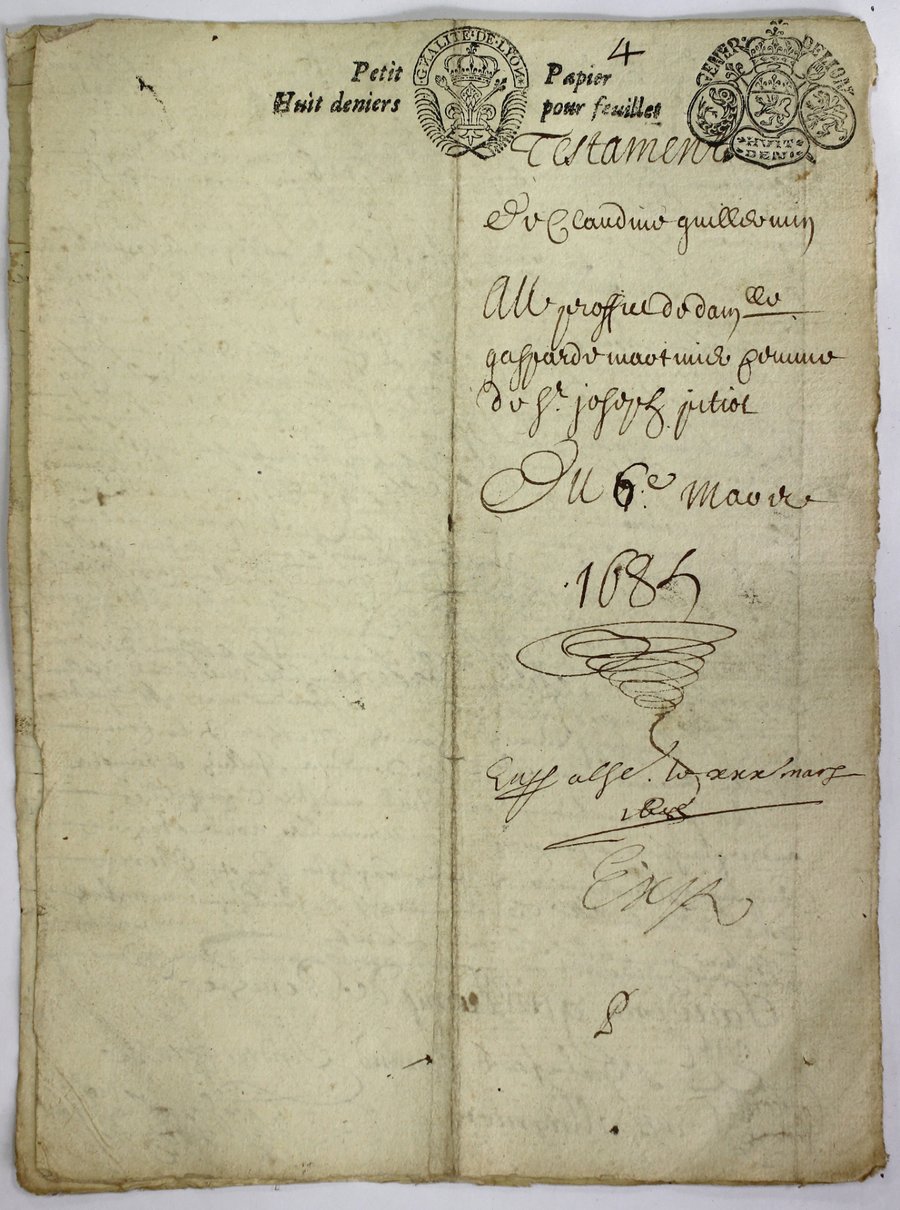 4
Petit Papier
Huit deniers pour feuilles
GNALITE·DE·LYON
GENER· DE LION
HUIT
DEN
Testament
de Claudine guillermin
Au proffict de dam^lle
gasparde martinie femme
de Sr. joseph pitiot
Du 6.e Mars
1685
le xxx mars
Exp
P